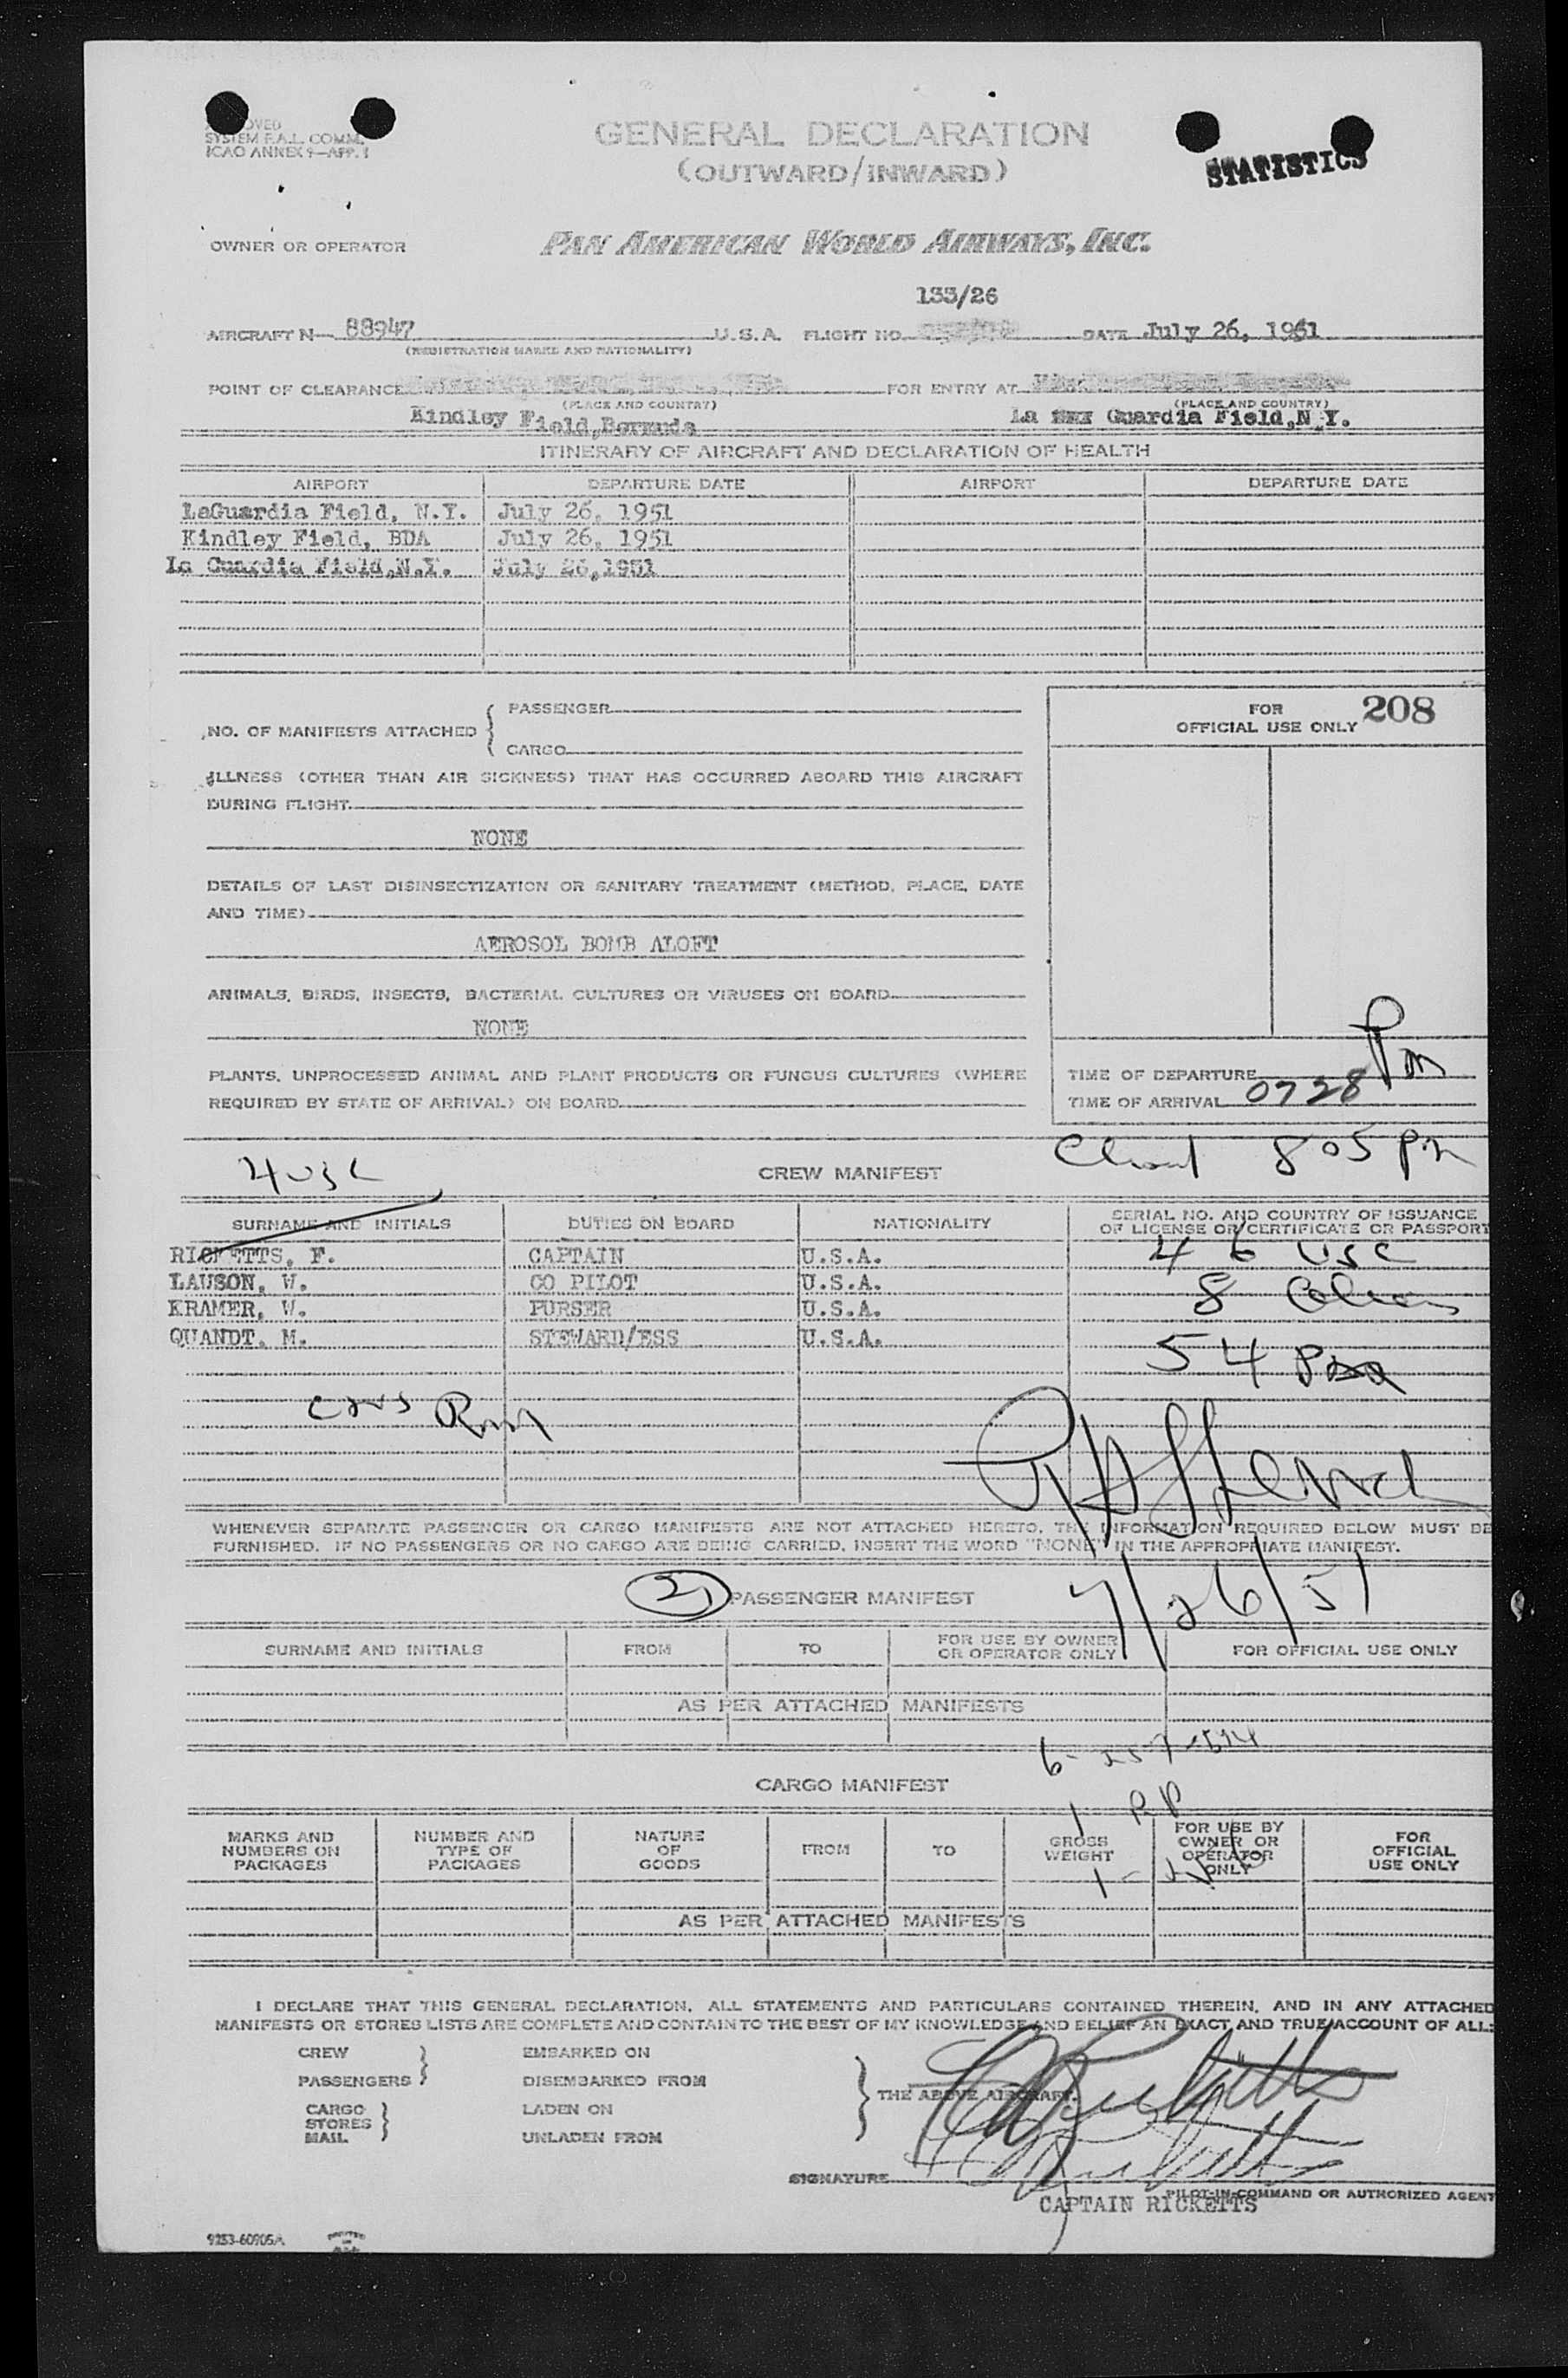 SYSTEM F.A.L. COMM.
ICAO ANNEX 9—APP. 1
GENERAL DECLARATION
(OUTWARD/INWARD)
STATISTICS
OWNER OR OPERATOR PAN AMERICAN WORLD AIRWAYS, INC.
133/26
AIRCRAFT N— 88947 U.S.A. FLIGHT NO. DATE July 26, 1951
(REGISTRATION MARKS AND NATIONALITY)
POINT OF CLEARANCE FOR ENTRY AT
(PLACE AND COUNTRY) (PLACE AND COUNTRY)
Kindley Field,Bermuda La Guardia Field,N.Y.
ITINERARY OF AIRCRAFT AND DECLARATION OF HEALTH
AIRPORT DEPARTURE DATE AIRPORT DEPARTURE DATE
LaGuardia Field, N.Y. July 26, 1951
Kindley Field, BDA July 26, 1951
La Guardia Field,N.Y. July 26,1951
NO. OF MANIFESTS ATTACHED { PASSENGER
CARGO
FOR
OFFICIAL USE ONLY 208
ILLNESS (OTHER THAN AIR SICKNESS) THAT HAS OCCURRED ABOARD THIS AIRCRAFT
DURING FLIGHT
NONE
DETAILS OF LAST DISINSECTIZATION OR SANITARY TREATMENT (METHOD, PLACE, DATE
AND TIME)
AEROSOL BOMB ALOFT
ANIMALS, BIRDS, INSECTS, BACTERIAL CULTURES OR VIRUSES ON BOARD
NONE
PLANTS, UNPROCESSED ANIMAL AND PLANT PRODUCTS OR FUNGUS CULTURES (WHERE
REQUIRED BY STATE OF ARRIVAL) ON BOARD
TIME OF DEPARTURE
TIME OF ARRIVAL 0728 Pm
805 Pm
4 USC
CREW MANIFEST
SURNAME AND INITIALS DUTIES ON BOARD NATIONALITY SERIAL NO. AND COUNTRY OF ISSUANCE
OF LICENSE OR CERTIFICATE OR PASSPORT
RICKETTS, F. CAPTAIN U.S.A. 46 USC
LAUSON, W. CO PILOT U.S.A. 8
KRAMER, W. PURSER U.S.A.
QUANDT, M. STEWARD/ESS U.S.A. 54
WHENEVER SEPARATE PASSENGER OR CARGO MANIFESTS ARE NOT ATTACHED HERETO, THE INFORMATION REQUIRED BELOW MUST BE
FURNISHED. IF NO PASSENGERS OR NO CARGO ARE BEING CARRIED, INSERT THE WORD "NONE" IN THE APPROPRIATE MANIFEST.
7/26/51
2 PASSENGER MANIFEST
SURNAME AND INITIALS FROM TO FOR USE BY OWNER
OR OPERATOR ONLY FOR OFFICIAL USE ONLY
AS PER ATTACHED MANIFESTS
CARGO MANIFEST
MARKS AND
NUMBERS ON
PACKAGES
NUMBER AND
TYPE OF
PACKAGES
NATURE
OF
GOODS
FROM
TO
GROSS
WEIGHT
FOR USE BY
OWNER OR
OPERATOR
ONLY
FOR
OFFICIAL
USE ONLY
AS PER ATTACHED MANIFESTS
I DECLARE THAT THIS GENERAL DECLARATION, ALL STATEMENTS AND PARTICULARS CONTAINED THEREIN, AND IN ANY ATTACHED
MANIFESTS OR STORES LISTS ARE COMPLETE AND CONTAIN TO THE BEST OF MY KNOWLEDGE AND BELIEF AN EXACT AND TRUE ACCOUNT OF ALL:
CREW EMBARKED ON
PASSENGERS DISEMBARKED FROM
THE ABOVE AIRCRAFT.
CARGO LADEN ON
STORES
MAIL UNLADEN FROM
SIGNATURE
PILOT-IN-COMMAND OR AUTHORIZED AGENT
CAPTAIN RICKETTS
9253-60905A